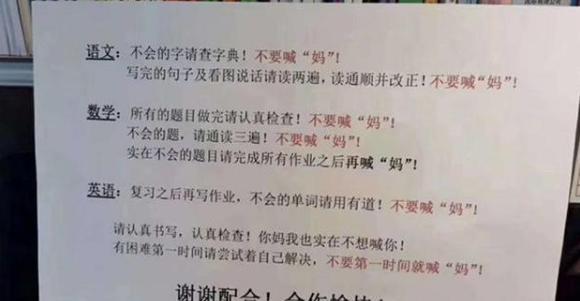 语文：不会的字请查字典！不要喊“妈”！
写完的句子及看图说话请读两遍，读通顺并改正！不要喊“妈”！
数学：所有的题目做完请认真检查！不要喊“妈”！
不会的题，请通读三遍！不要喊“妈”！
实在不会的题目请完成所有作业之后再喊“妈”！
英语：复习之后再写作业，不会的单词请用有道！不要喊“妈”！
请认真书写，认真检查！你妈我也实在不想喊你！
有困难第一时间请尝试着自己解决，不要第一时间就喊“妈”！
谢谢配合！合作愉快